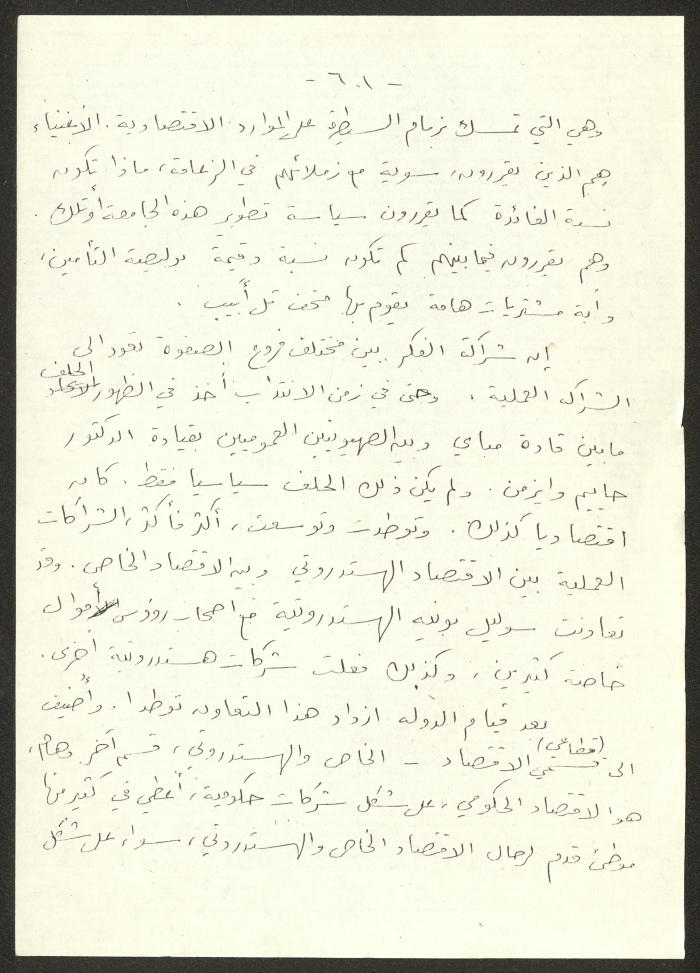 - ٦٠١ -
وهي التي تمسك بزمام السيطرة على الموارد الاقتصادية. الأغنياء
هم الذين يقررون، سوية مع زملائهم في الزعامة، ماذا تكون
نسبة الفائدة كما يقررون سياسة تطوير هذه الجامعة أو تلك.
وهم يقررون فيما بينهم كم تكون نسبة وقيمة بوليصة التأمين،
وأية مشتريات هامة يقوم بها متحف تل أبيب.
إن شراكة الفكر بين مختلف فروع الصفوة تقود الى
الشراكة العملية. وحتى في زمن الانتداب أخذ في الظهور الحلف
مابين قادة مباي وبين الصهيونيين العموميين بقيادة الدكتور
حاييم وايزمن. ولم يكن ذلك الحلف سياسيا فقط. كان
اقتصاديا كذلك. وتوطدت وتوسعت، أكثر فأكثر، الشراكات
العملية بين الاقتصاد الهستدروتي وبين الاقتصاد الخاص. وقد
تعاونت سوليل بونيه الهستدروتية مع اصحاب رؤوس أموال
خاصة كثيرين، وكذلك فعلت شركات هستدروتية أخرى.
بعد قيام الدوله ازداد هذا التعاون توطدا. وأضيف
الى قسمي (قطاعي) الاقتصاد - الخاص والهستدروتي، قسم آخر وهام،
هو الاقتصاد الحكومي، على شكل شركات حكومية، أعطي في كثير منها
موطئ قدم لرجال الاقتصاد الخاص والهستدروتي، سواء على شكل